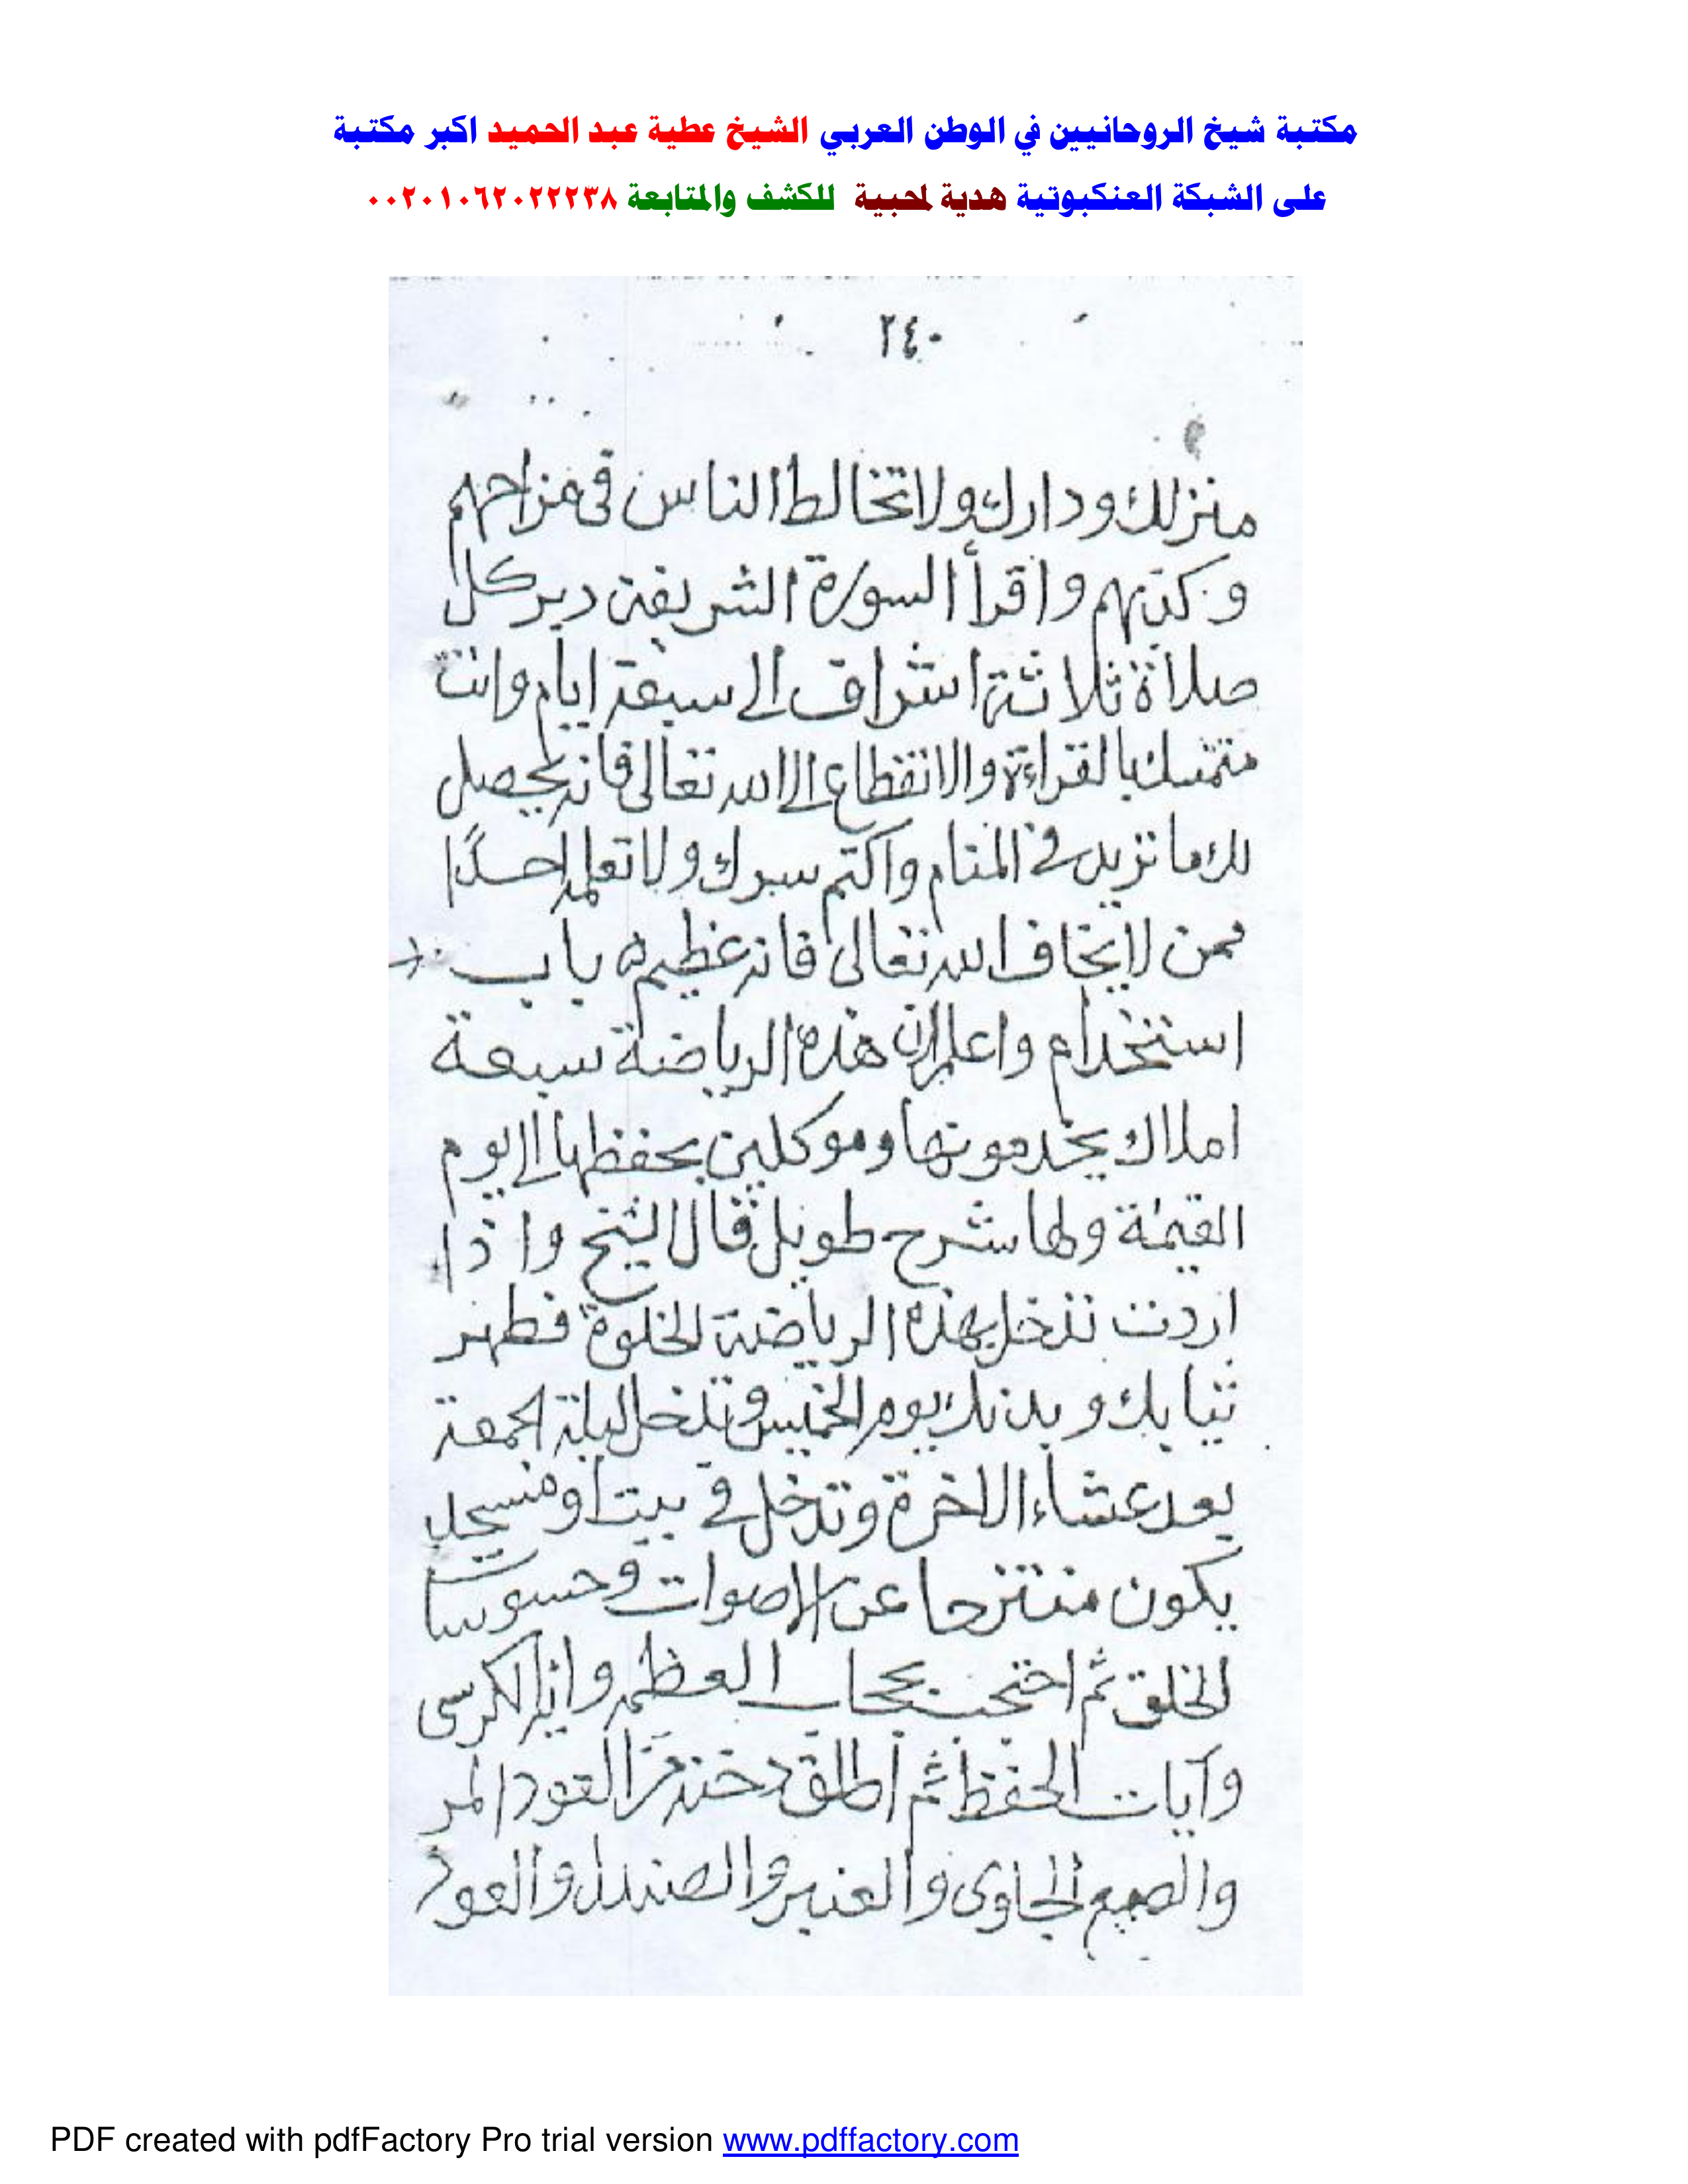 مكتبة شيخ الروحانيين في الوطن العربي الشيخ عطية عبد الحميد اكبر مكتبة
على الشبكة العنكبوتية هدية لمحبية للكشف والمتابعة ٠٠٢٠١٠٦٢٠٢٢٢٣٨
٢٤٠
منزلك ودارك ولا تخالط الناس فى مزاحهم
وكذبهم واقرأ السورة الشريفة دبر كل
صلاة ثلاثة اشراف الى سبعة ايام وانت
متمسك بالقراءة والانقطاع الى الله تعالى فانه يحصل
لك ما تريد في المنام واكتم سرك ولا تعلمه احدًا
ممن لا يخاف الله تعالى فانه عظيم ه باب
استخدام واعلم ان هذه الرياضة سبعة
املاك يخدمونها وموكلين بحفظها الى يوم
القيمة ولها شرح طويل قال الشيخ واذا
اردت تدخل بهذه الرياضة الخلوة فطهر
ثيابك وبدنك يوم الخميس وتدخل ليلة الجمعة
بعد عشاء الاخرة وتدخل في بيت او مسجد
يكون منتزحا عن الاصوات وحسوسات
الخلق ثم احتجب بحجاب العظمه واية الكرسى
وآيات الحفظ ثم أطلق دخنة من العود المر
والصمع الجاوى والعنبر والصندل والعود
PDF created with pdfFactory Pro trial version www.pdffactory.com